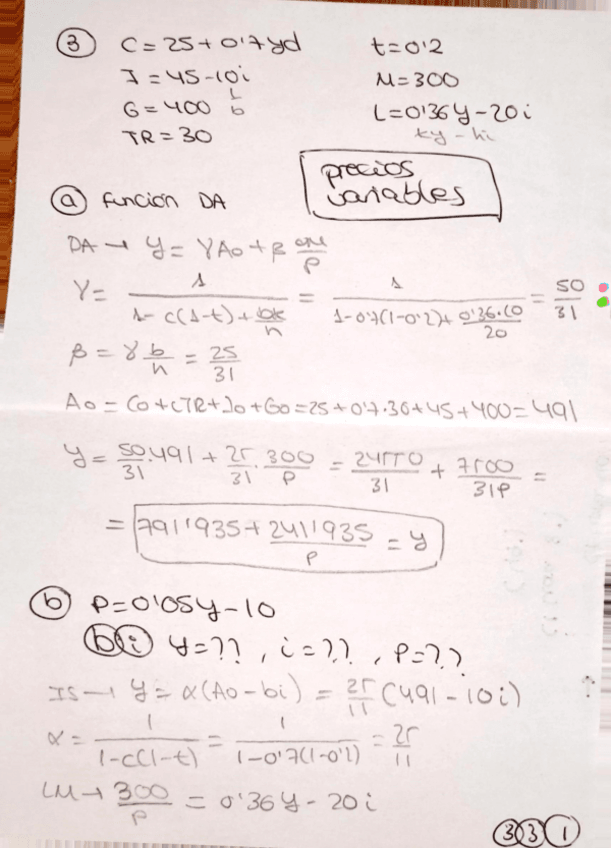 ③ C = 25 + 0'7yd t = 0'2
I = 45 - 10i M = 300
G = 400 b L = 0'36y - 20i
TR = 30 ky - hi
precios variables
ⓐ función DA
DA → y = γAo + β M/P
γ = 1 / (1 - c(1-t) + bk/h) = 1 / (1 - 0'7(1-0'2) + 0'36·10/20) = 50/31
β = γ b/h = 25/31
Ao = Co + cTR + Io + Go = 25 + 0'7·30 + 45 + 400 = 491
y = 50/31 · 491 + 25/31 · 300/P = 24550/31 + 7500/31P =
= 791'935 + 241'935/P = y
ⓑ P = 0'05y - 10
bi y = ??, i = ??, P = ??
IS → y = α(Ao - bi) = 25/11 (491 - 10i)
α = 1 / (1 - c(1-t)) = 1 / (1 - 0'7(1-0'2)) = 25/11
LM → 300/P = 0'36y - 20i
③③①